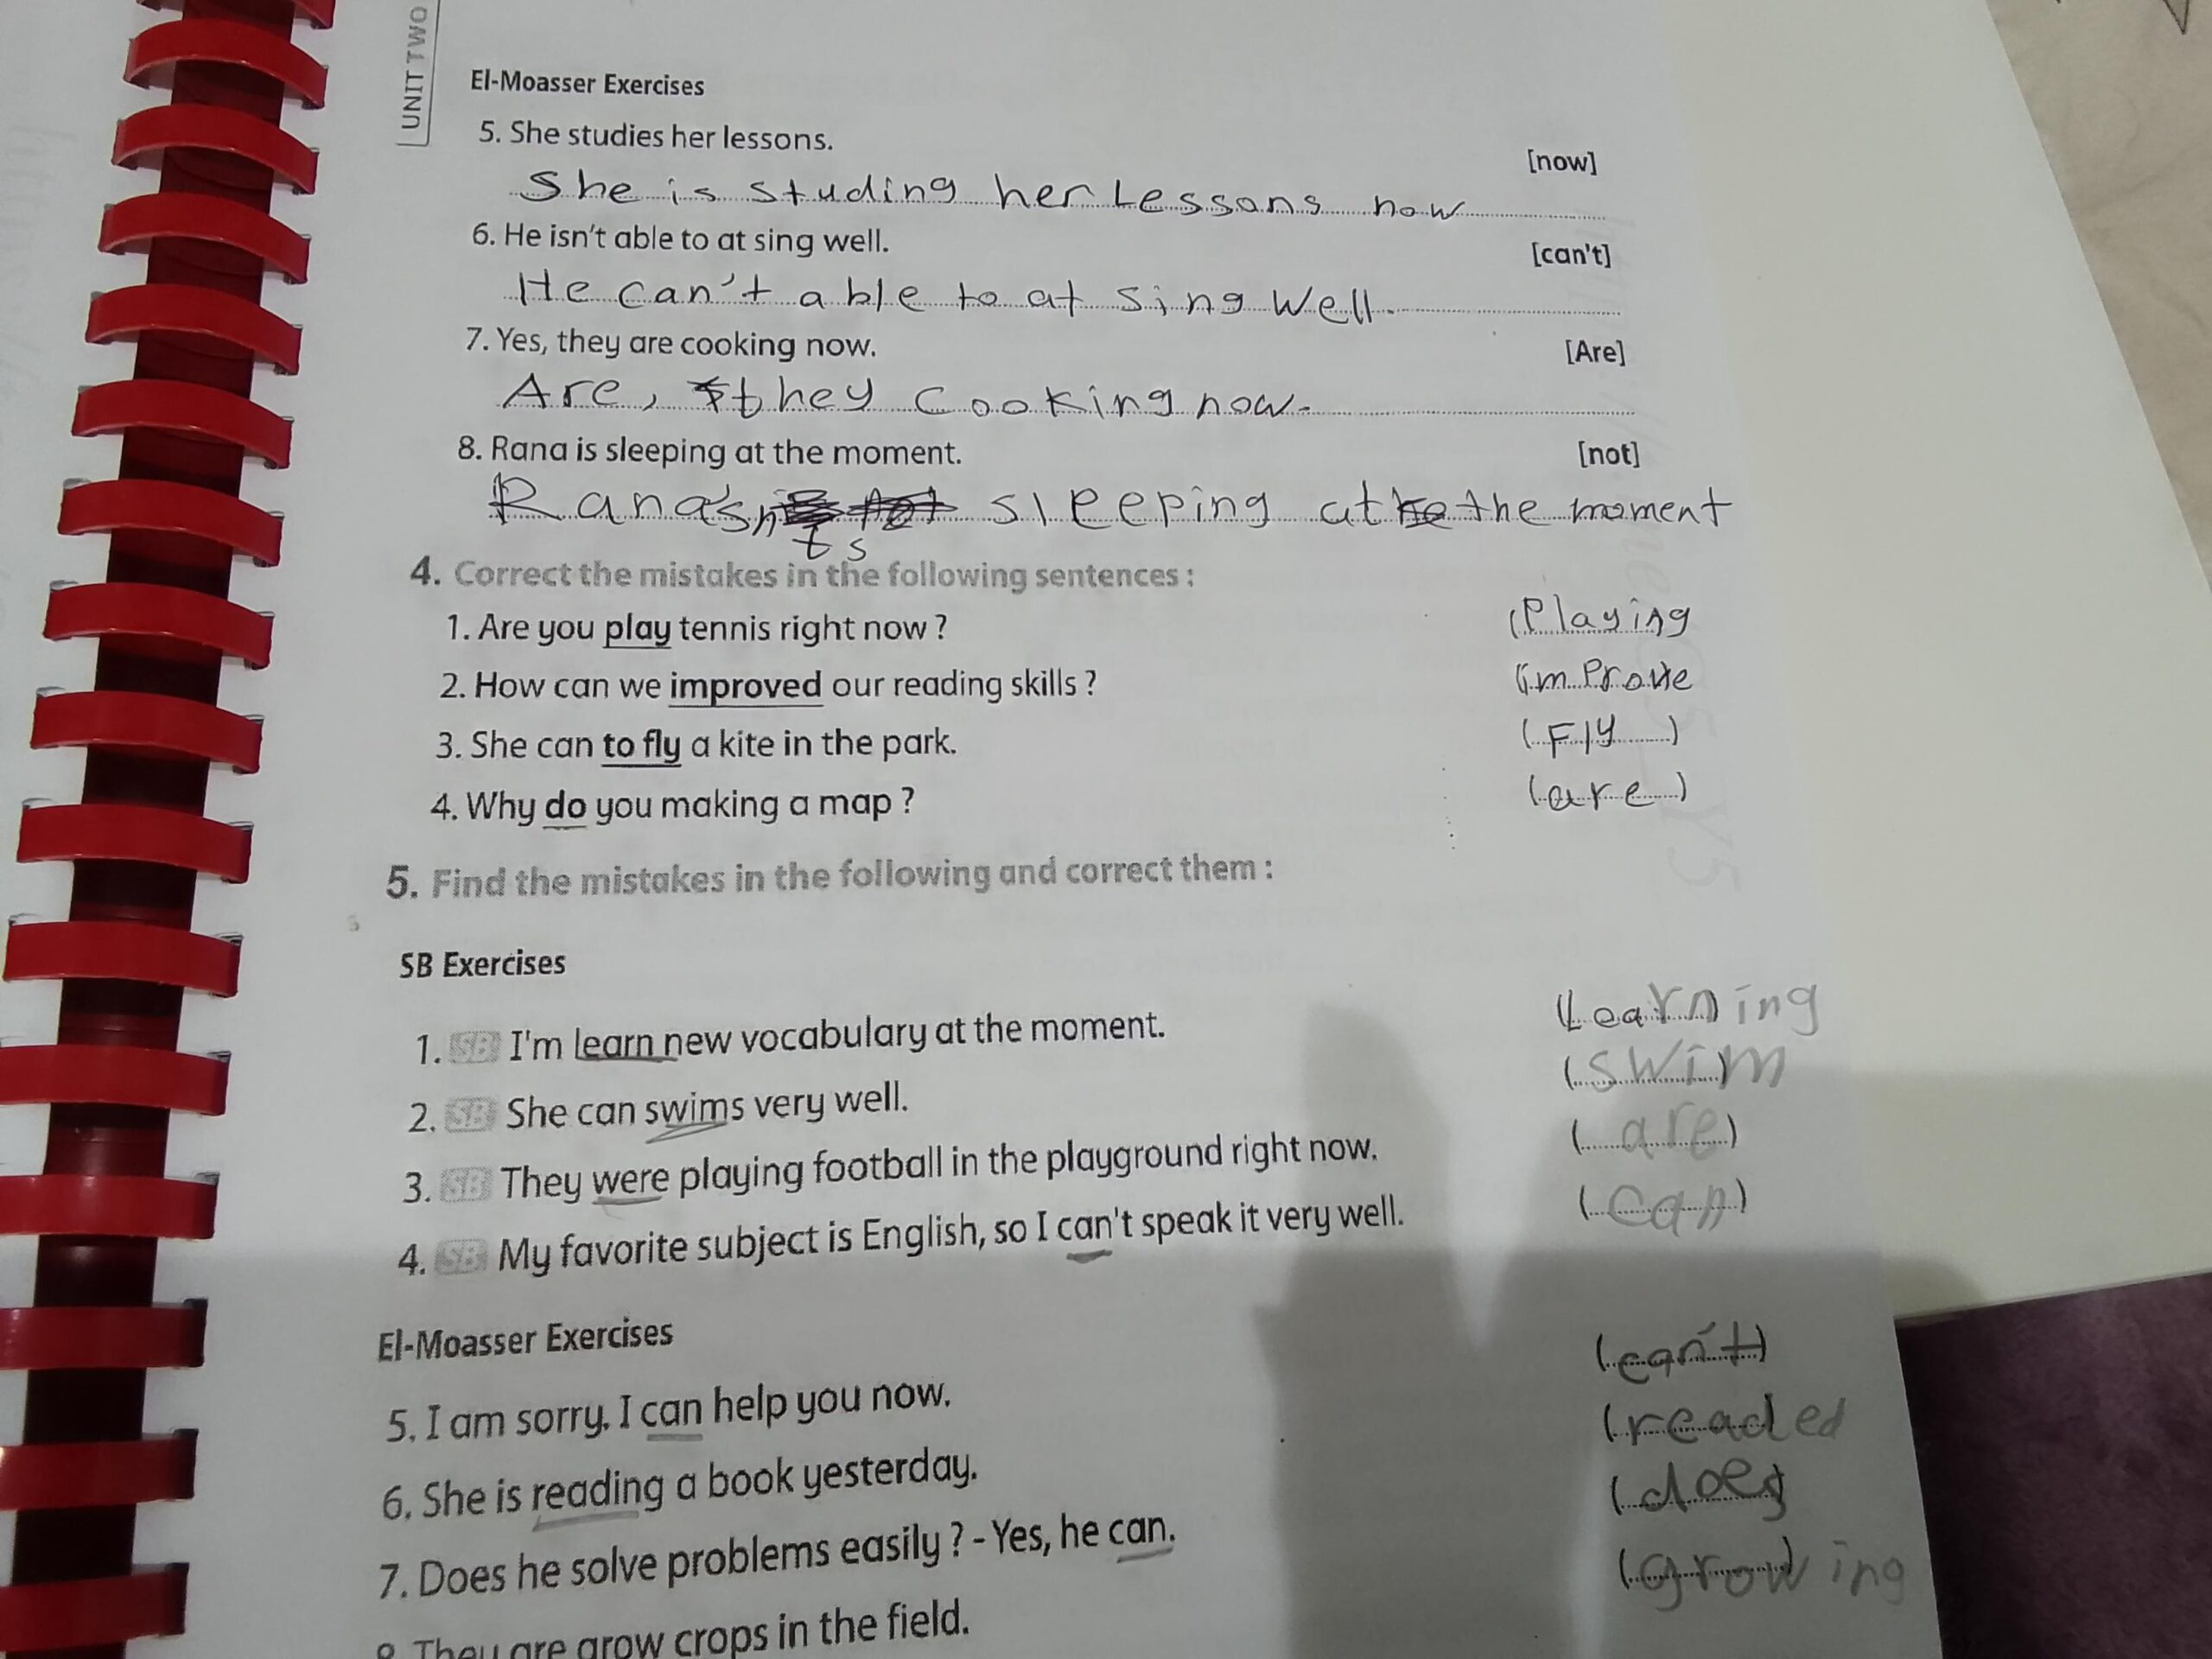 UNIT TWO
El-Moasser Exercises
5. She studies her lessons. [now]
She is studing her Lessons now
6. He isn't able to at sing well. [can't]
He can't able to at sing well.
7. Yes, they are cooking now. [Are]
Are, they cooking now.
8. Rana is sleeping at the moment. [not]
Rana's sleeping at the moment
4. Correct the mistakes in the following sentences :
1. Are you play tennis right now ? (Playing
2. How can we improved our reading skills ? (improve
3. She can to fly a kite in the park. (Fly)
4. Why do you making a map ? (are)
5. Find the mistakes in the following and correct them :
SB Exercises
1. SB I'm learn new vocabulary at the moment. (Learning
2. SB She can swims very well. (swim)
3. SB They were playing football in the playground right now. (are)
4. SB My favorite subject is English, so I can't speak it very well. (can)
El-Moasser Exercises
5. I am sorry. I can help you now. (can't)
6. She is reading a book yesterday. (readed
7. Does he solve problems easily ? - Yes, he can. (does)
8. They are grow crops in the field. (growing